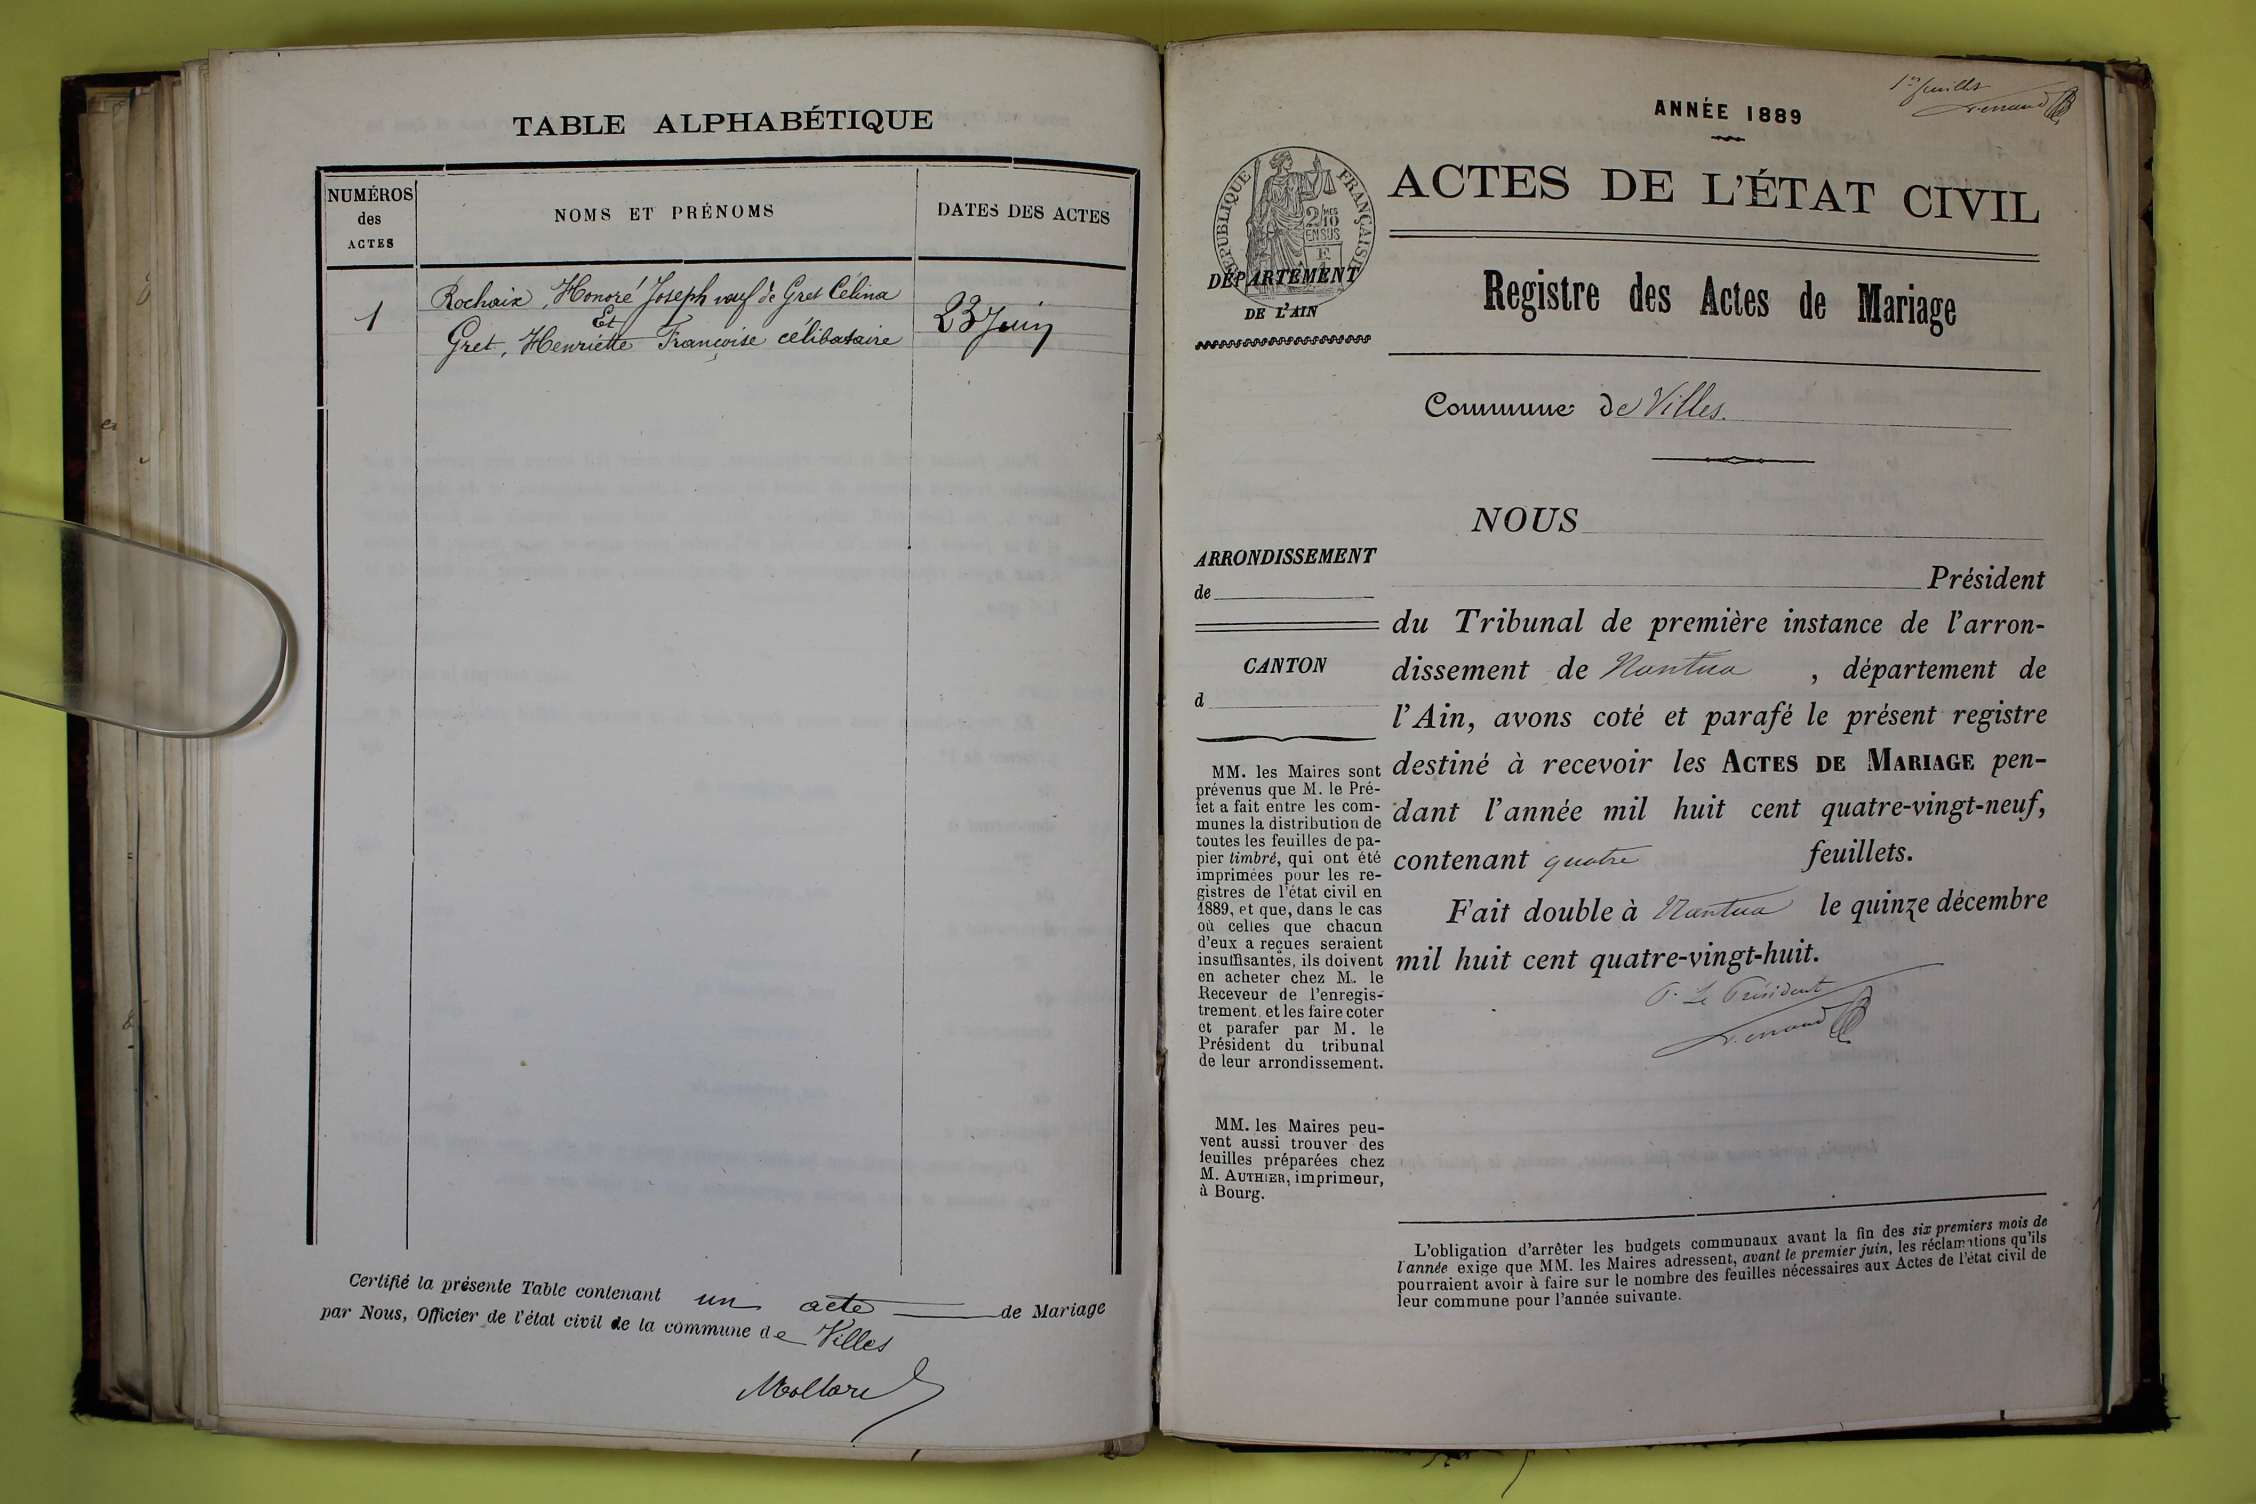 TABLE ALPHABÉTIQUE
NUMÉROS
des
ACTES
NOMS ET PRÉNOMS
DATES DES ACTES
1
Rochaix, Honoré Joseph veuf de Gret Célina
Et
Gret, Henriette Françoise célibataire
23 Juin
Certifié la présente Table contenant un acte de Mariage
par Nous, Officier de l'état civil de la commune de Villes
1er feuillet
ANNÉE 1889
RÉPUBLIQUE FRANÇAISE
2/10 MES
EN SUS
DÉPARTEMENT
DE L'AIN
ACTES DE L'ÉTAT CIVIL
Registre des Actes de Mariage
Commune de Villes.
ARRONDISSEMENT
de
CANTON
d
MM. les Maires sont
prévenus que M. le Pré-
fet a fait entre les com-
munes la distribution de
toutes les feuilles de pa-
pier timbré, qui ont été
imprimées pour les re-
gistres de l'état civil en
1889, et que, dans le cas
où celles que chacun
d'eux a reçues seraient
insuffisantes, ils doivent
en acheter chez M. le
Receveur de l'enregis-
trement, et les faire coter
et parafer par M. le
Président du tribunal
de leur arrondissement.
MM. les Maires peu-
vent aussi trouver des
feuilles préparées chez
M. AUTHIER, imprimeur,
à Bourg.
NOUS
Président
du Tribunal de première instance de l'arron-
dissement de Nantua , département de
l'Ain, avons coté et parafé le présent registre
destiné à recevoir les ACTES DE MARIAGE pen-
dant l'année mil huit cent quatre-vingt-neuf,
contenant quatre feuillets.
Fait double à Nantua le quinze décembre
mil huit cent quatre-vingt-huit.
P. Le Président
L'obligation d'arrêter les budgets communaux avant la fin des six premiers mois de
l'année exige que MM. les Maires adressent, avant le premier juin, les réclamations qu'ils
pourraient avoir à faire sur le nombre des feuilles nécessaires aux Actes de l'état civil de
leur commune pour l'année suivante.